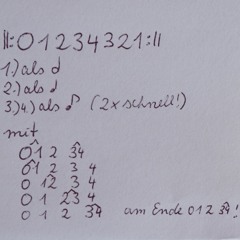 ||:01234321:||
1.) als ♩
2.) als ♩
3.)4.) als ♪ (2x schnell!)
mit
0 1 2 3 4
0 1 2 3 4
0 1 2 3 4
0 1 2 3 4
0 1 2 3 4 am Ende 0 1 2 3 4!